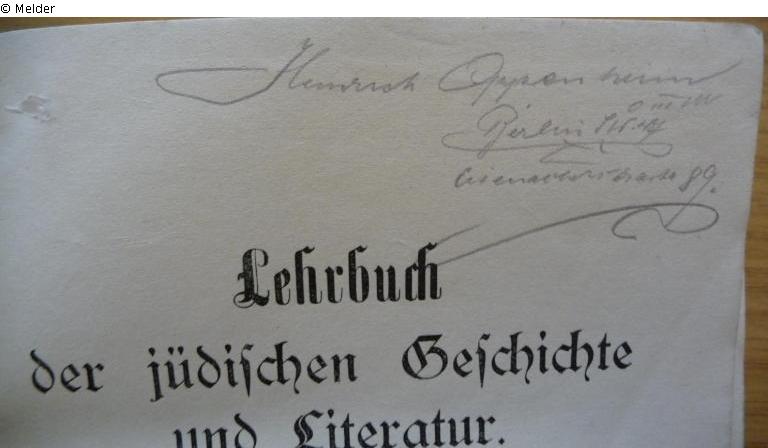 © Melder
Heinrich Oppenheim
Berlin
Eisenacherstrasse 89.
Lehrbuch
der jüdischen Geschichte
und Literatur.